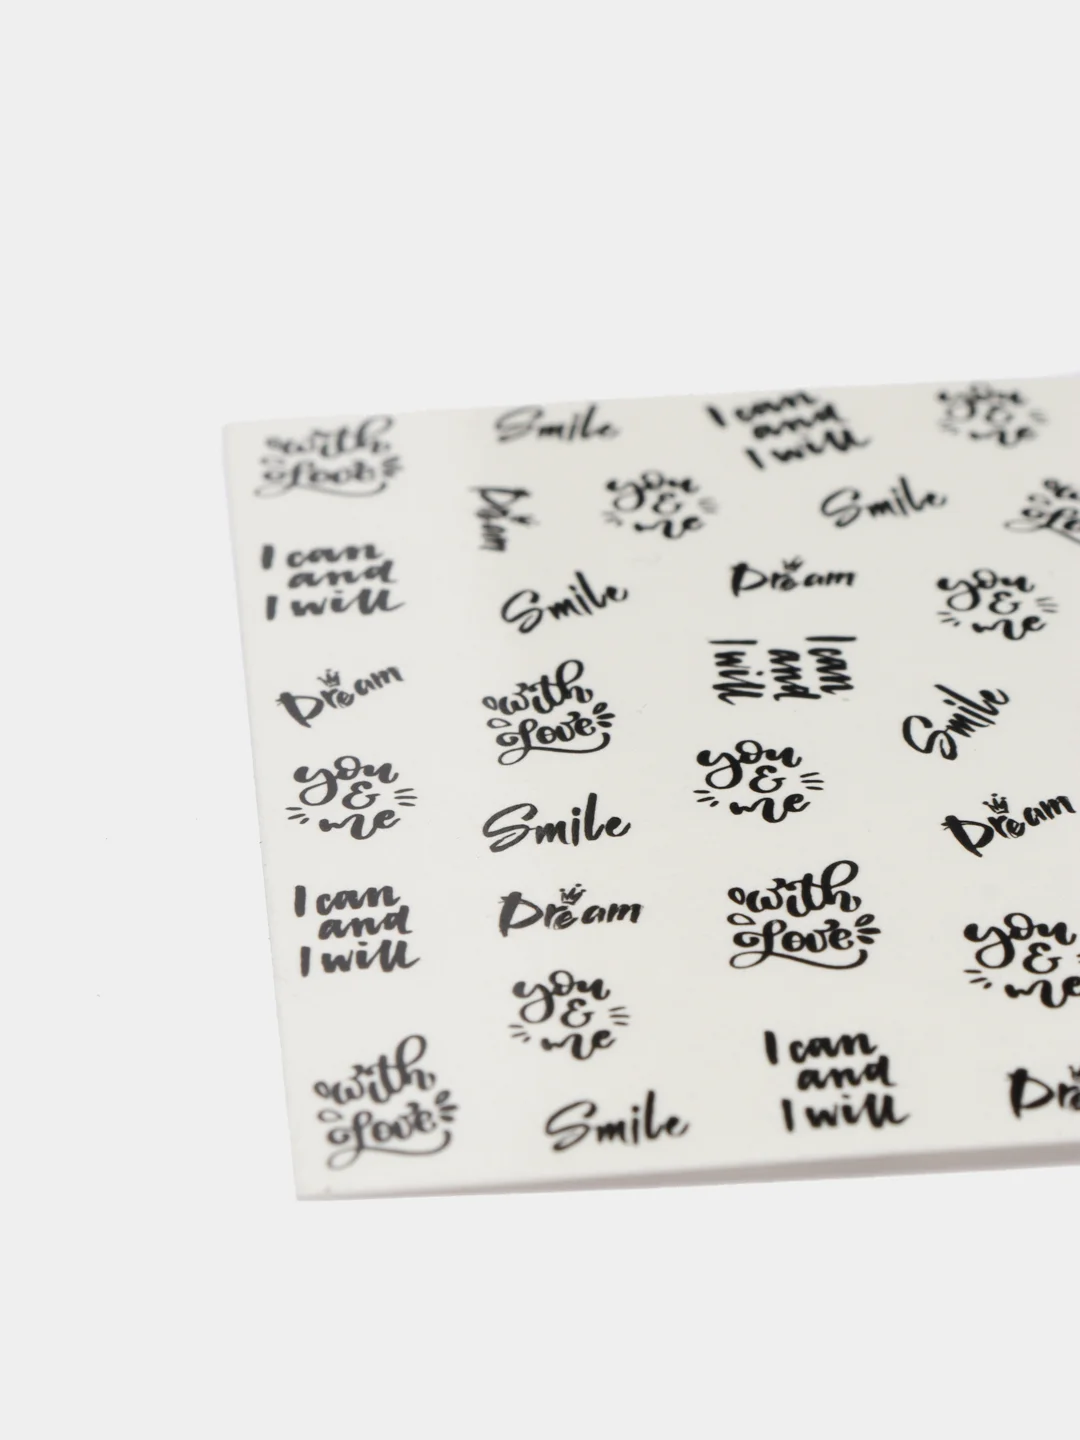 with
Love
Smile
I can
and
I will
you
&
me
Dream
you
&
me
Smile
with
Love
I can
and
I will
Smile
Dream
you
&
me
Dream
with
Love
I can
and
I will
Smile
you
&
me
Smile
you
&
me
Dream
I can
and
I will
Dream
with
Love
you
&
me
you
&
me
with
Love
Smile
I can
and
I will
Dre